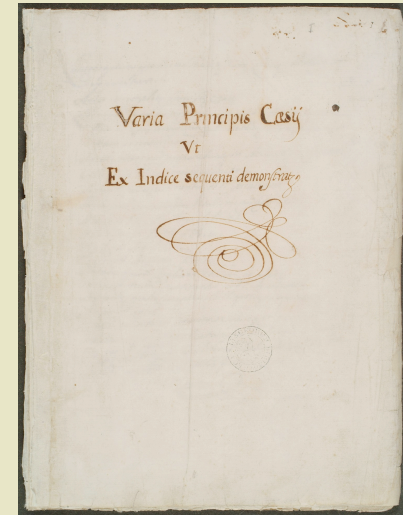 Varia Principis Cæsij
Vt
Ex Indice sequenti demonstratꝛ